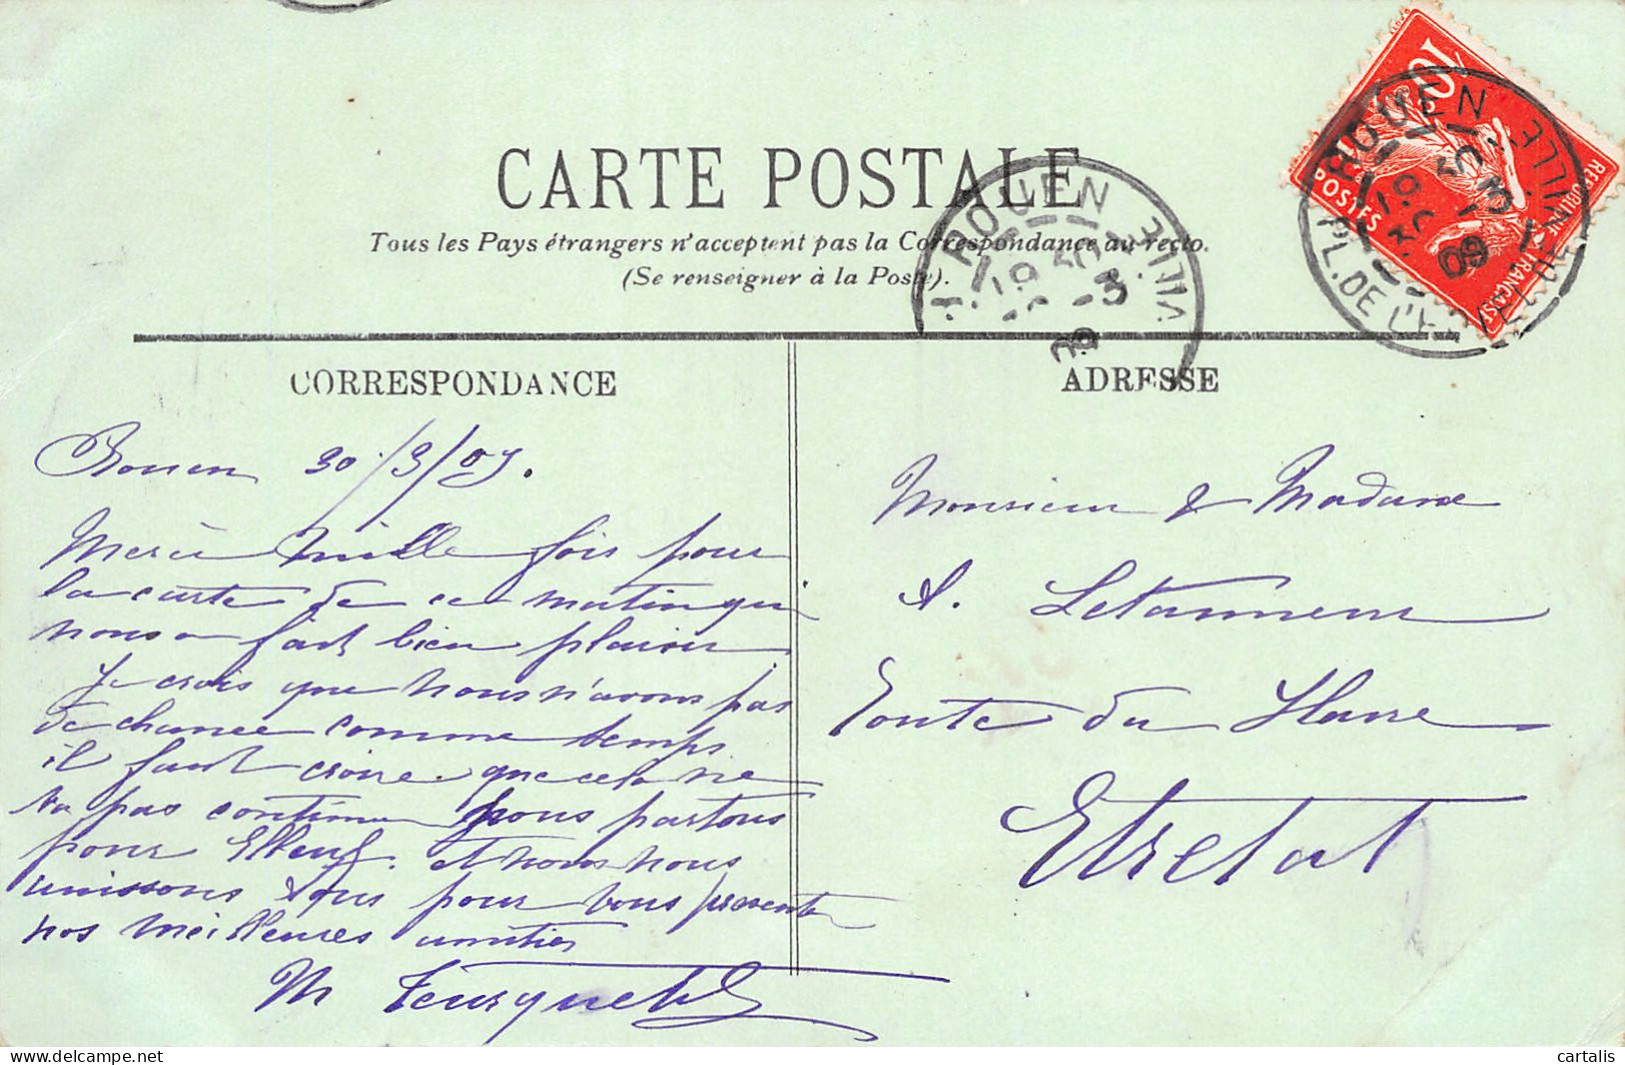 CARTE POSTALE
Tous les Pays étrangers n'acceptent pas la Correspondance au recto.
(Se renseigner à la Poste).
ROUEN VILLE
30 -3
09
10
POSTES
REPUBLIQUE FRANÇAISE
ROUEN
PL. DE L'HÔTEL DE VILLE
30 -3
09
CORRESPONDANCE
ADRESSE
Rouen 30/3/09.
Merci mille fois pour
la carte de ce matin qui
nous a fait bien plaisir
Je crois que nous n'avons pas
de chance comme temps
il faut croire que cela ne
va pas continuer nous partons
pour Elbeuf. et nous nous
unissons tous pour vous présenter
nos meilleures amitiés
M
Monsieur & Madame
A. Letanneur
Route du Havre
Etretat
cartalis